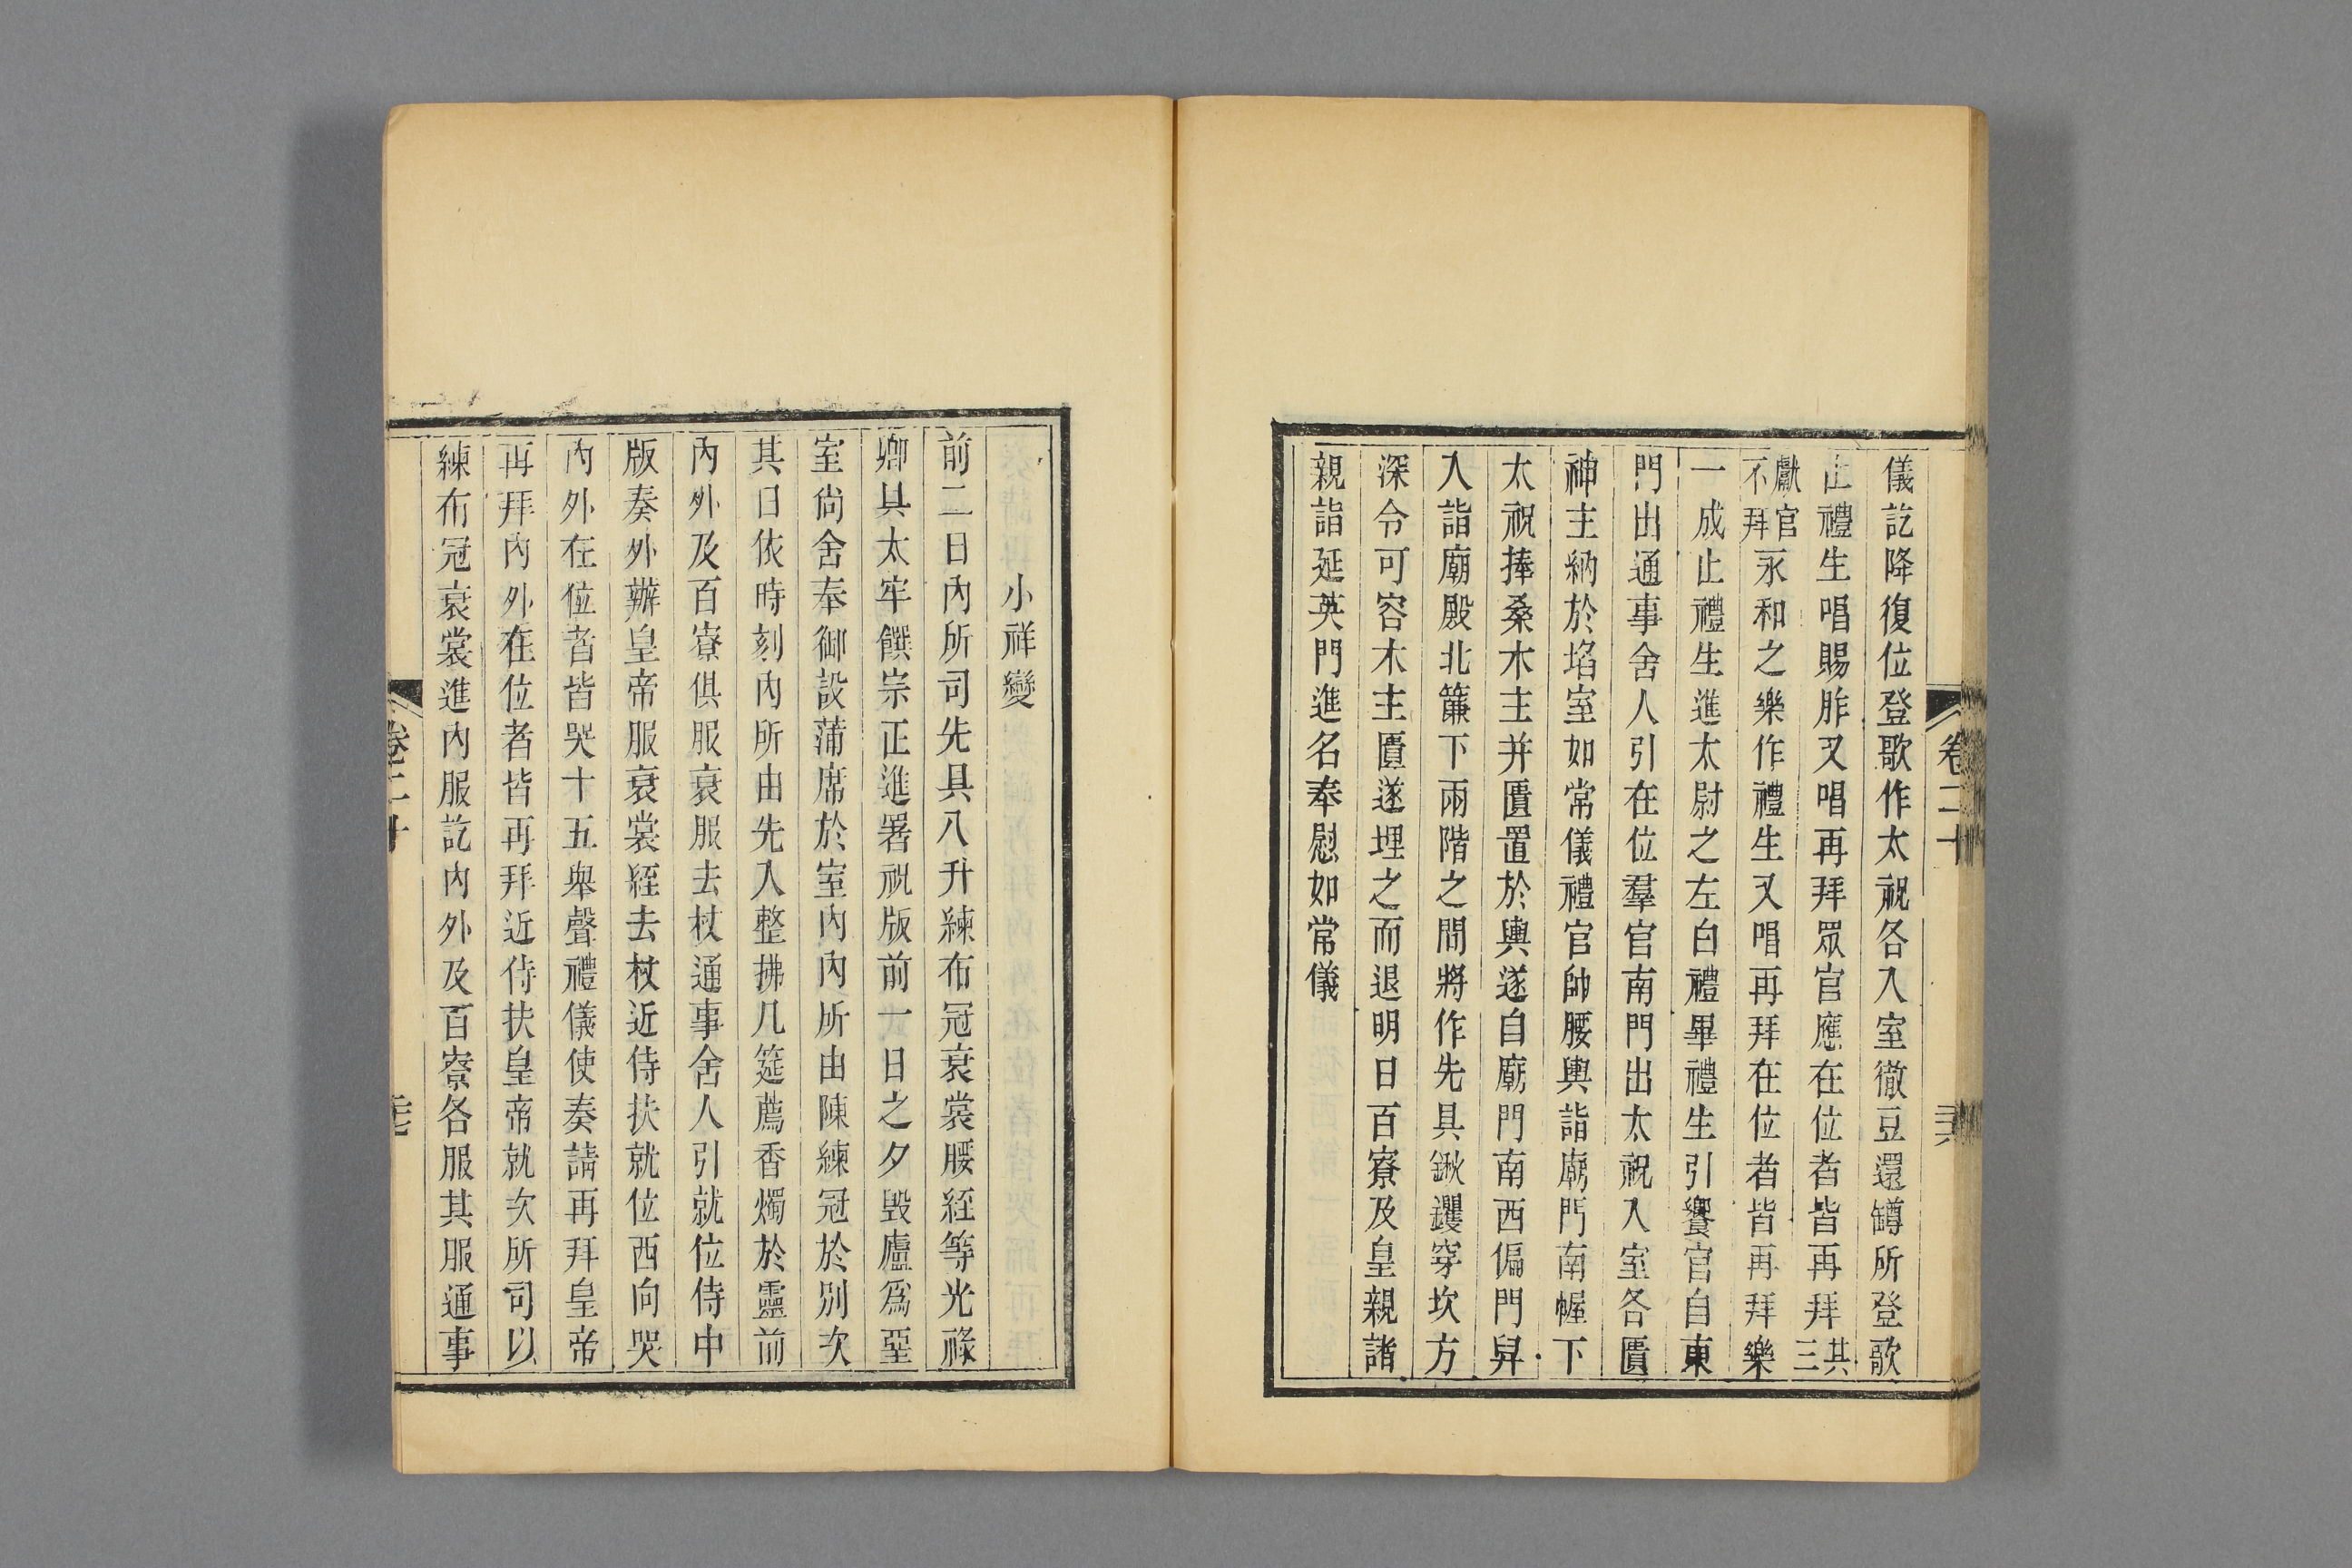 儀訖降復位登歌作太祝各入室徹豆還罇所登歌
止禮生唱賜胙又唱再拜眾官應在位者皆再拜其三
獻官不拜永和之樂作禮生又唱再拜在位者皆再拜樂
一成止禮生進太尉之左白禮畢禮生引饗官自東
門出通事舍人引在位羣官南門出太祝入室各匱
神主納於埳室如常儀禮官帥腰輿詣廟門南幄下
太祝捧桑木主并匱置於輿遂自廟門南西偏門舁
入詣廟殿北簾下兩階之間將作先具鍬钁穿坎方
深令可容木主匱遂埋之而退明日百寮及皇親諸
親詣延英門進名奉慰如常儀
卷二十
小祥變
前二日內所司先具八升練布冠衰裳腰絰等光祿
卿具太牢饌宗正進署祝版前一日之夕毀廬爲堊
室尙舍奉御設蒲席於室內內所由陳練冠於別次
其日依時刻內所由先入整拂几筵薦香燭於靈前
內外及百寮俱服衰服去杖通事舍人引就位侍中
版奏外辦皇帝服衰裳絰去杖近侍扶就位西向哭
內外在位者皆哭十五舉聲禮儀使奏請再拜皇帝
再拜內外在位者皆再拜近侍扶皇帝就次所司以
練布冠衰裳進內服訖內外及百寮各服其服通事
卷二十